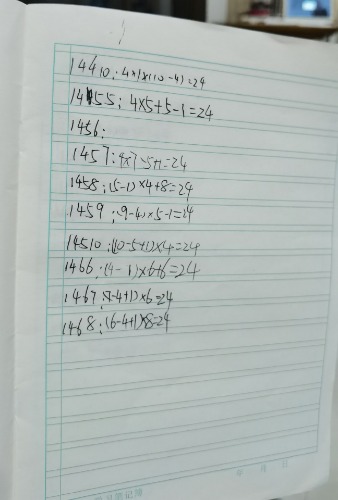 14410:4×1×(10-4)=24
1455:4×5+5-1=24
1456:
1457:4×7-5+1=24
1458:(5-1)×4+8=24
1459:(9-4)×5-1=24
14510:(10-5+1)×4=24
1466:(4-1)×6+6=24
1467:(7-4+1)×6=24
1468:(6-4+1)×8=24